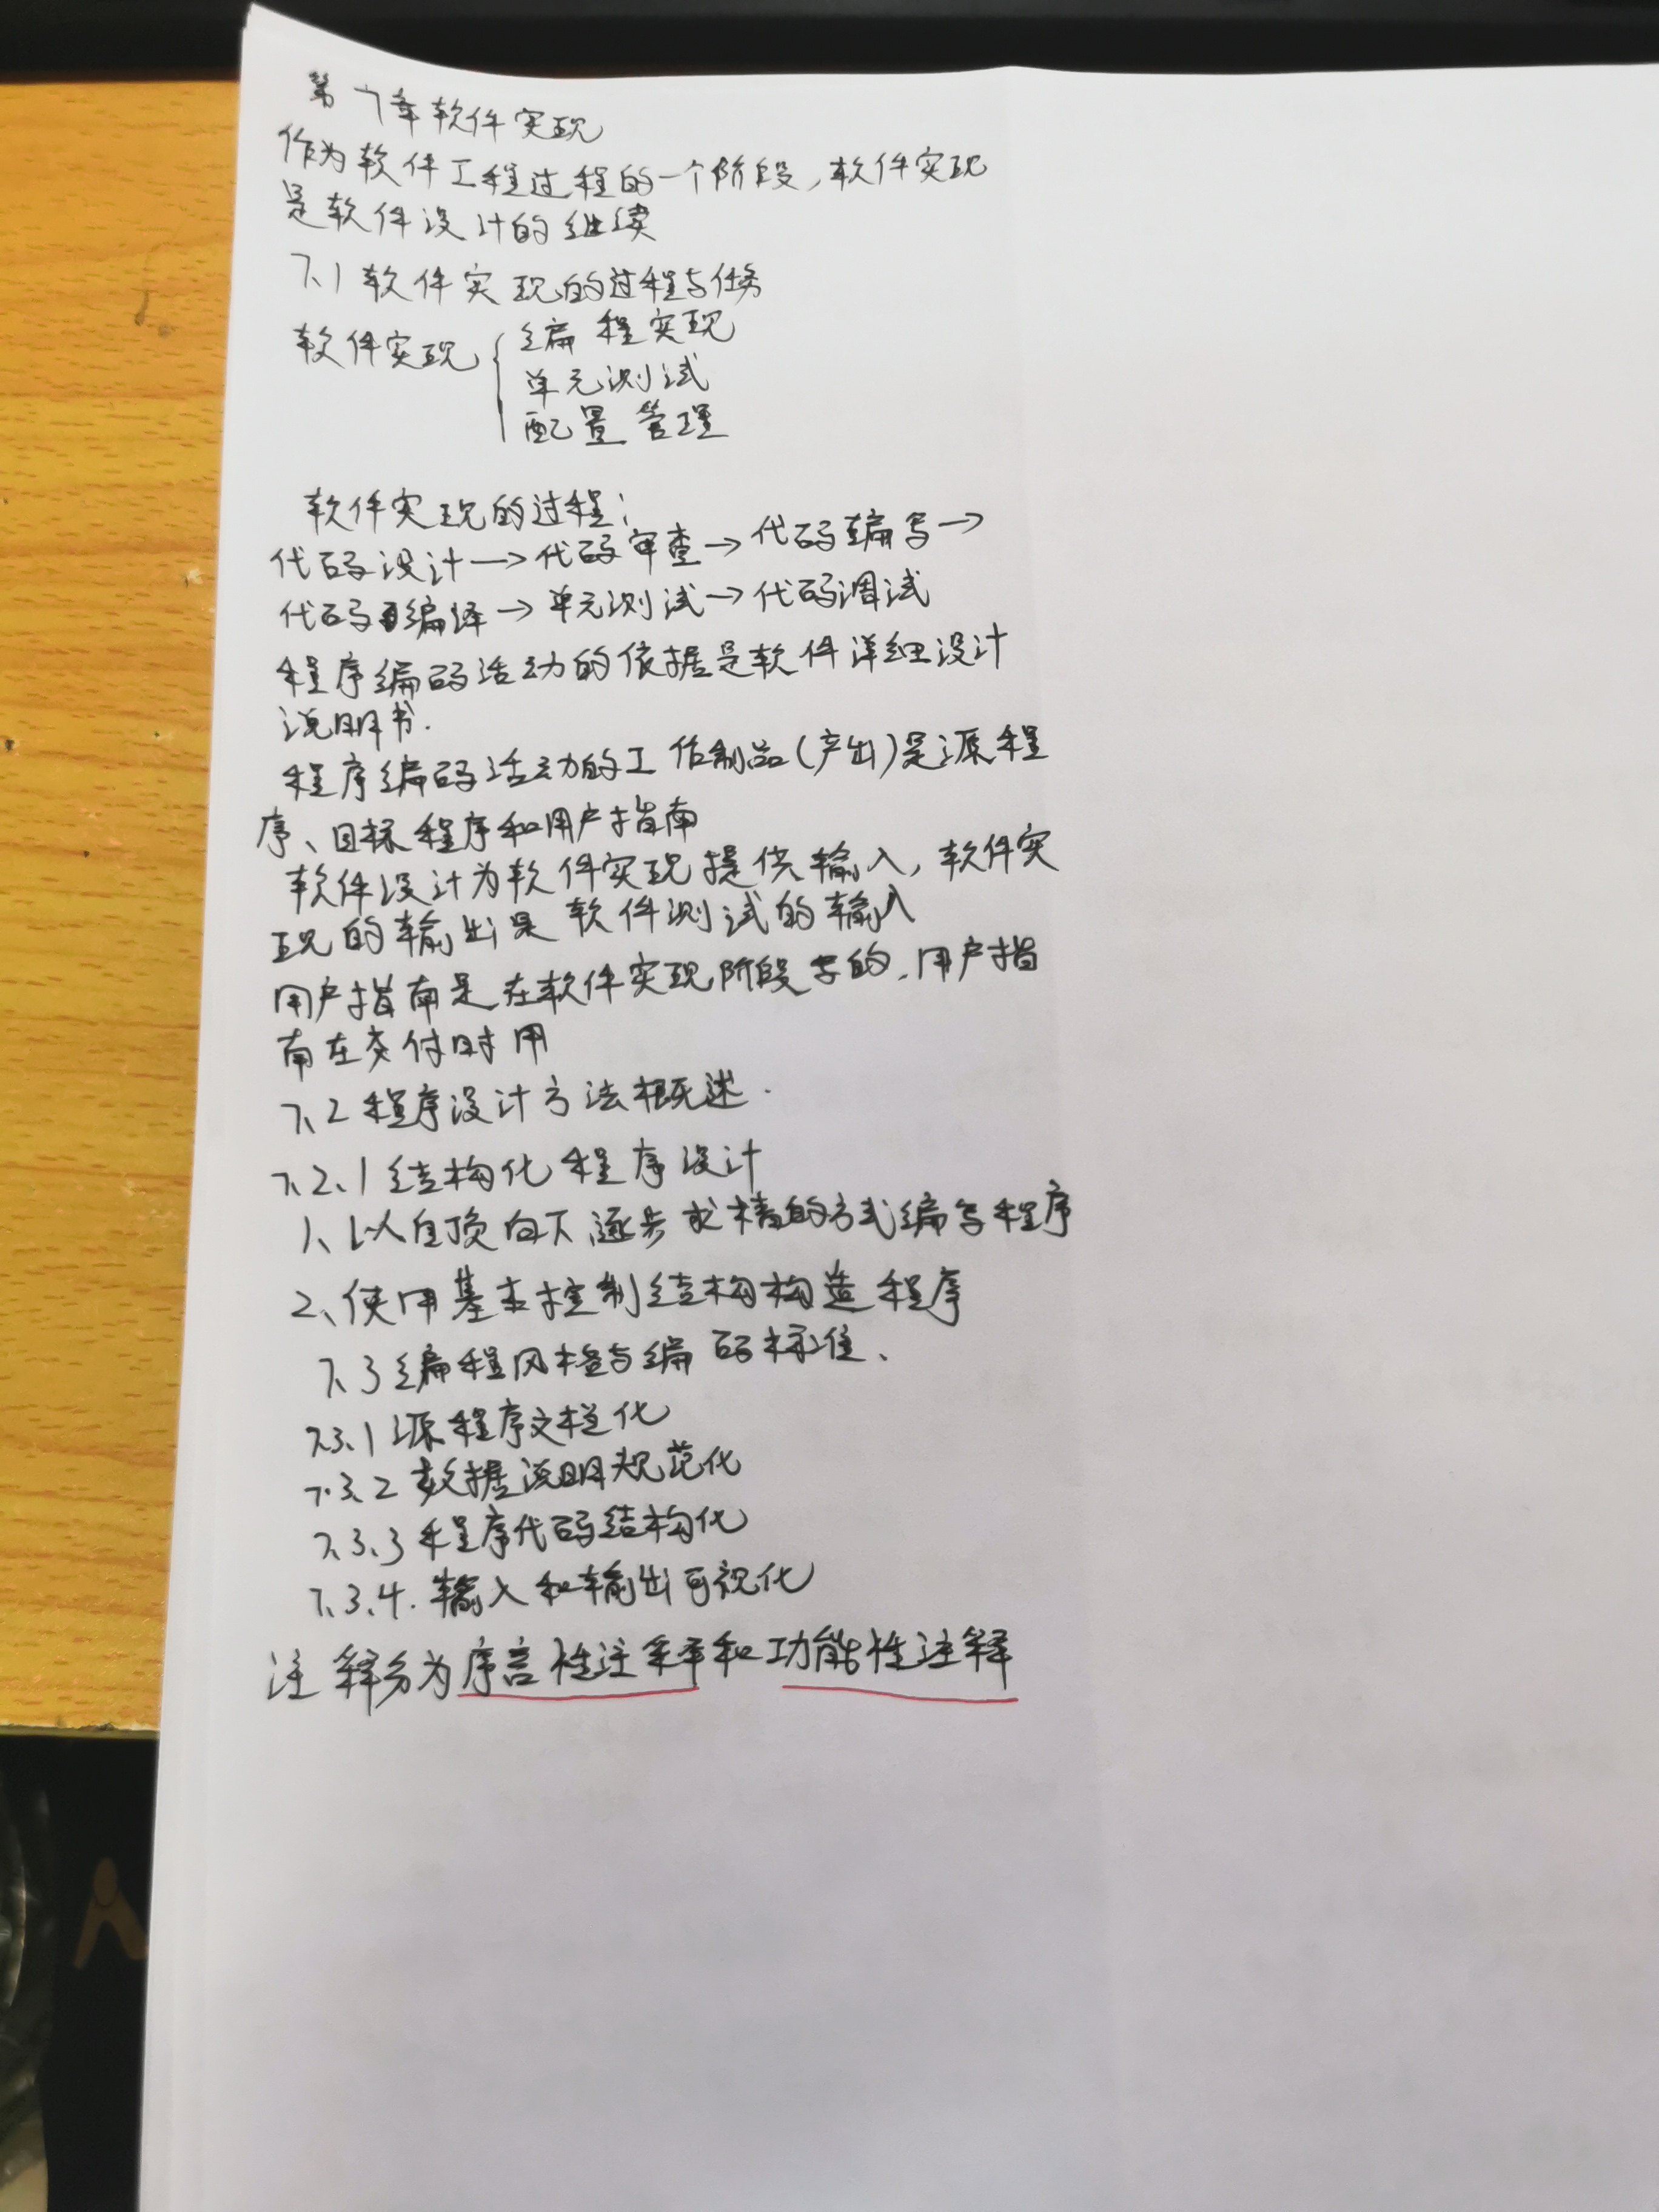 第7章软件实现
作为软件工程过程的一个阶段,软件实现
是软件设计的继续
7、1 软件实现的过程与任务
软件实现 { 编程实现
单元测试
配置管理
软件实现的过程:
代码设计→代码审查→代码编写→
代码编译→单元测试→代码调试
程序编码活动的依据是软件详细设计
说明书.
程序编码活动的工作制品(产出)是源程
序、目标程序和用户指南
软件设计为软件实现提供输入,软件实
现的输出是软件测试的输入
用户指南是在软件实现阶段写的,用户指
南在交付时用
7、2 程序设计方法概述.
7、2、1 结构化程序设计
1、以自顶向下逐步求精的方式编写程序
2、使用基本控制结构构造程序
7、3 编程风格与编码标准、
7.3、1 源程序文档化
7.3.2 数据说明规范化
7、3、3 程序代码结构化
7、3、4. 输入和输出可视化
注释分为序言性注释和功能性注释